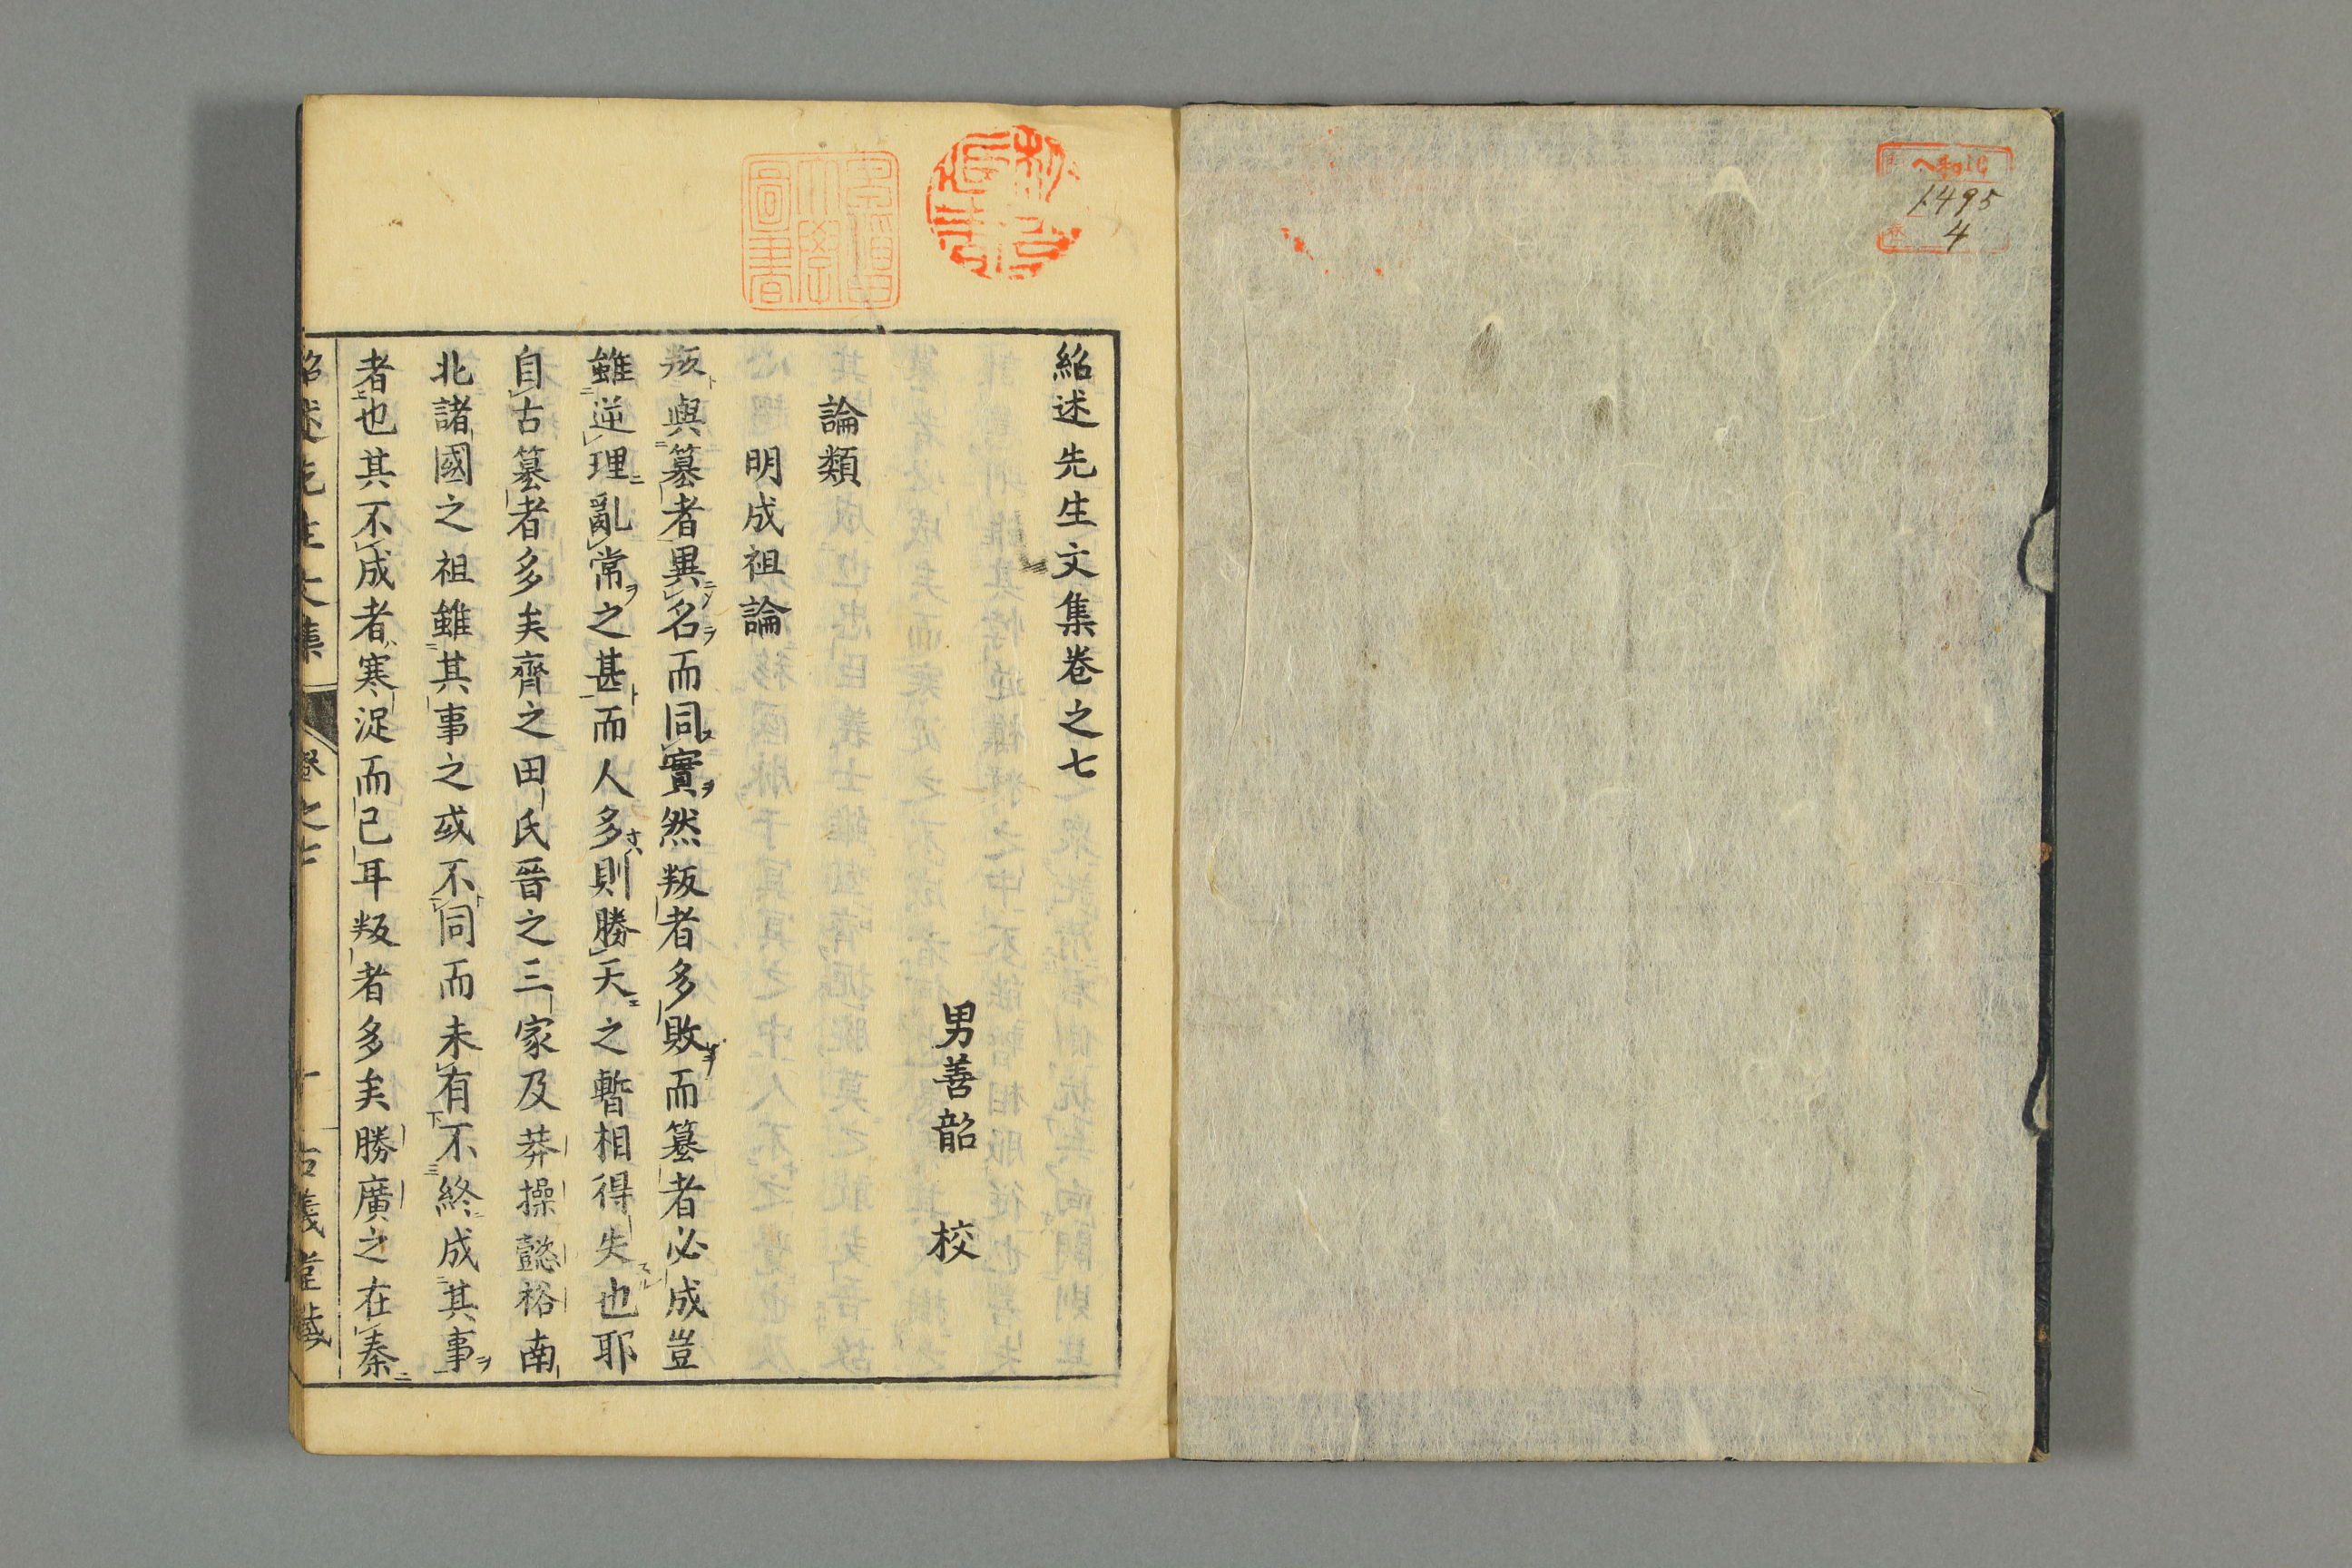 1495
4
紹述先生文集卷之七
男善韶 校
論類
明成祖論
叛與簒者異名而同實然叛者多敗而簒者必成豈
雖逆理亂常之甚而人多則勝天之暫相得失也耶
自古簒者多矣齊之田氏晉之三家及莽操懿裕南
北諸國之祖雖其事之或不同而未有不終成其事
者也其不成者寒浞而已耳叛者多矣勝廣之在秦
紹述先生文集 卷之七 一 古義堂藏